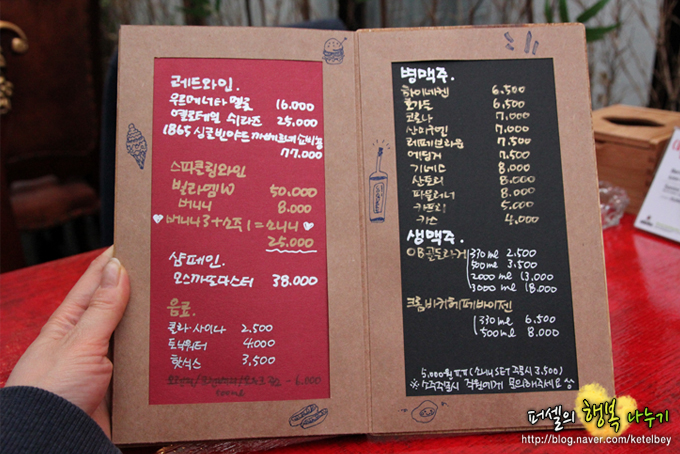 레드와인.
운드머리타 멜로 16.000
옐로테일 쉬라즈 25,000
1865 싱글빈야드 까베르네 쇼비뇽
77.000
스파클링와인
빌라엠W 50.000
버니니 8.000
버니니 3 + 소주 1 = 소니니
25,000
샴페인.
모스까또다스터 38.000
음료.
콜라·사이다 2.500
토닉워터 4.000
핫식스 3,500
6.000
병맥주.
하이네켄 6,500
호가든 6,500
코로나 7,000
산미구엔 7,000
레페브라운 7,500
에딩거 7.500
기네스 8.000
산토리 8.000
파울라너 8.000
카프리 5.000
카스 4,000
생맥주.
OB골드라거 330ml 2.500
500ml 3,500
2000ml 13.000
3000ml 18.000
크롬바커헤페바이젠
330ml 6.500
500ml 8.000
※ 소주주문시 직원에게 문의해주세요
퍼셀의 행복 나누기
http://blog.naver.com/ketelbey